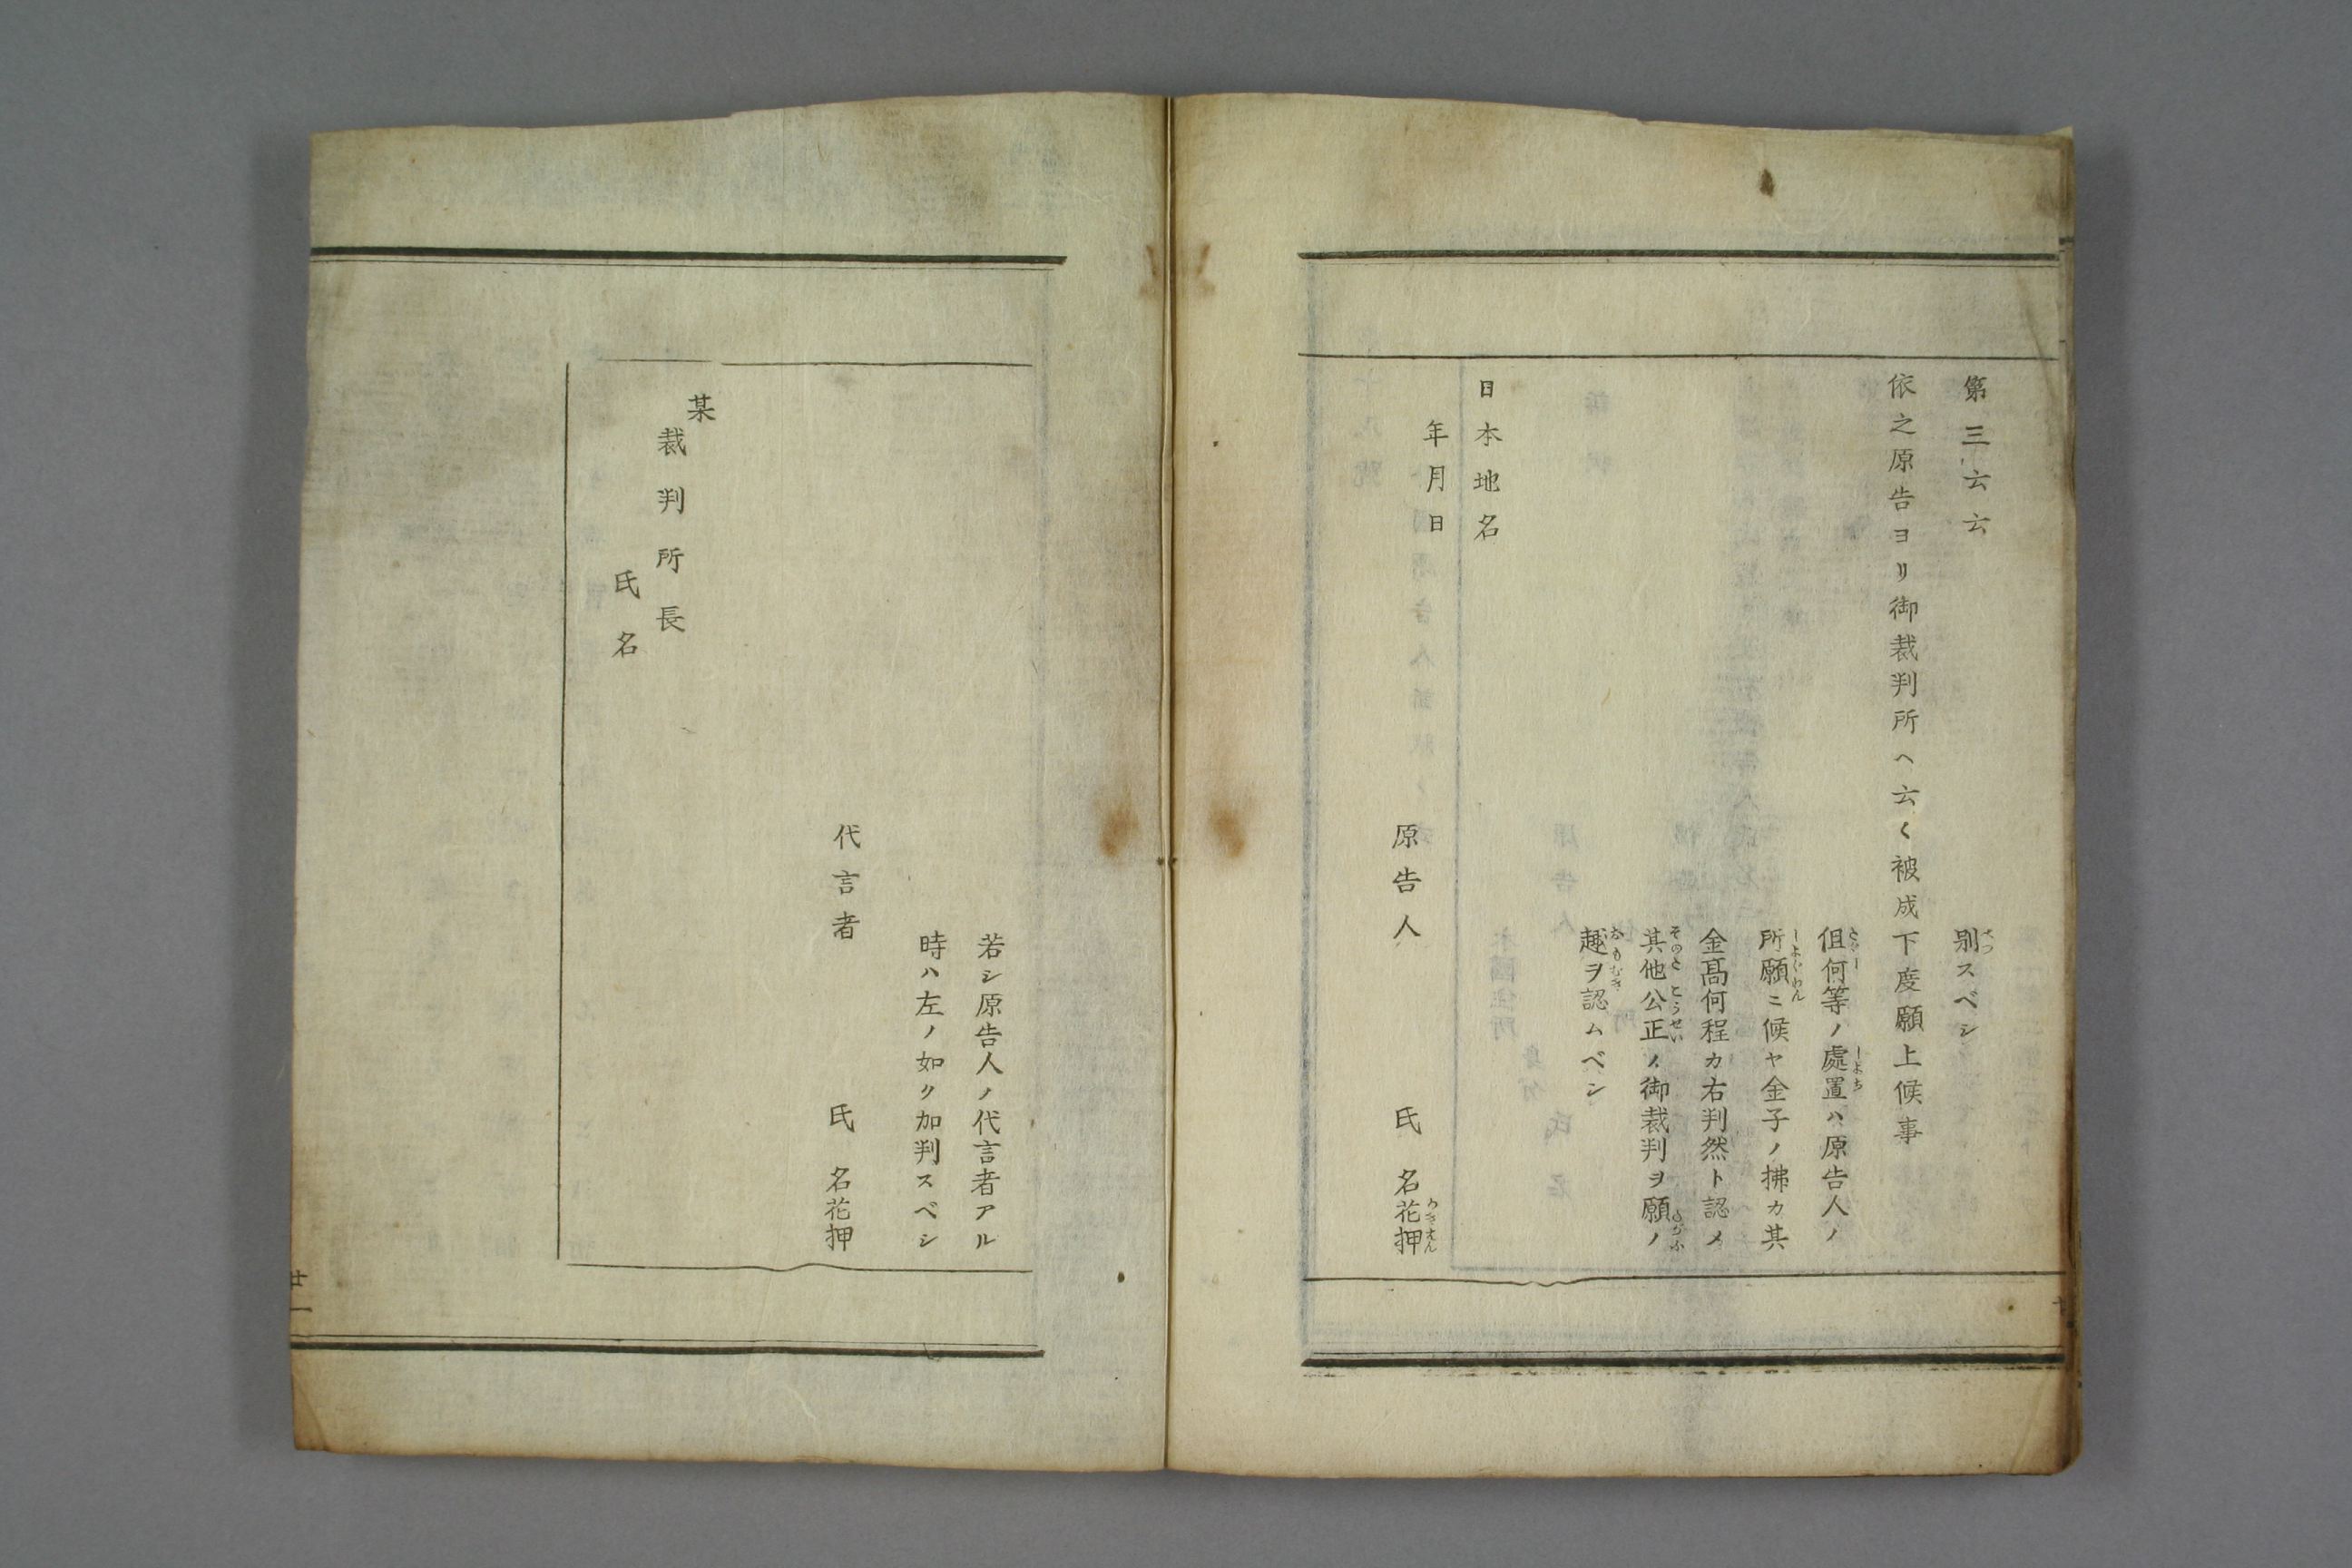 別スベシ
第三云云
依之原告ヨリ御裁判所ヘ云く被成下度願上候事
但何等ノ處置ハ原告人ノ
所願ニ候ヤ金子ノ拂カ其
金髙何程カ右判然ト認メ
其他公正ノ御裁判ヲ願ノ
趣ヲ認ムベシ
日本地名
年月日
原告人 氏名花押
若シ原告人ノ代言者アル
時ハ左ノ如ク加判スベシ
代言者 氏名花押
某
裁判所長
氏名
廿一